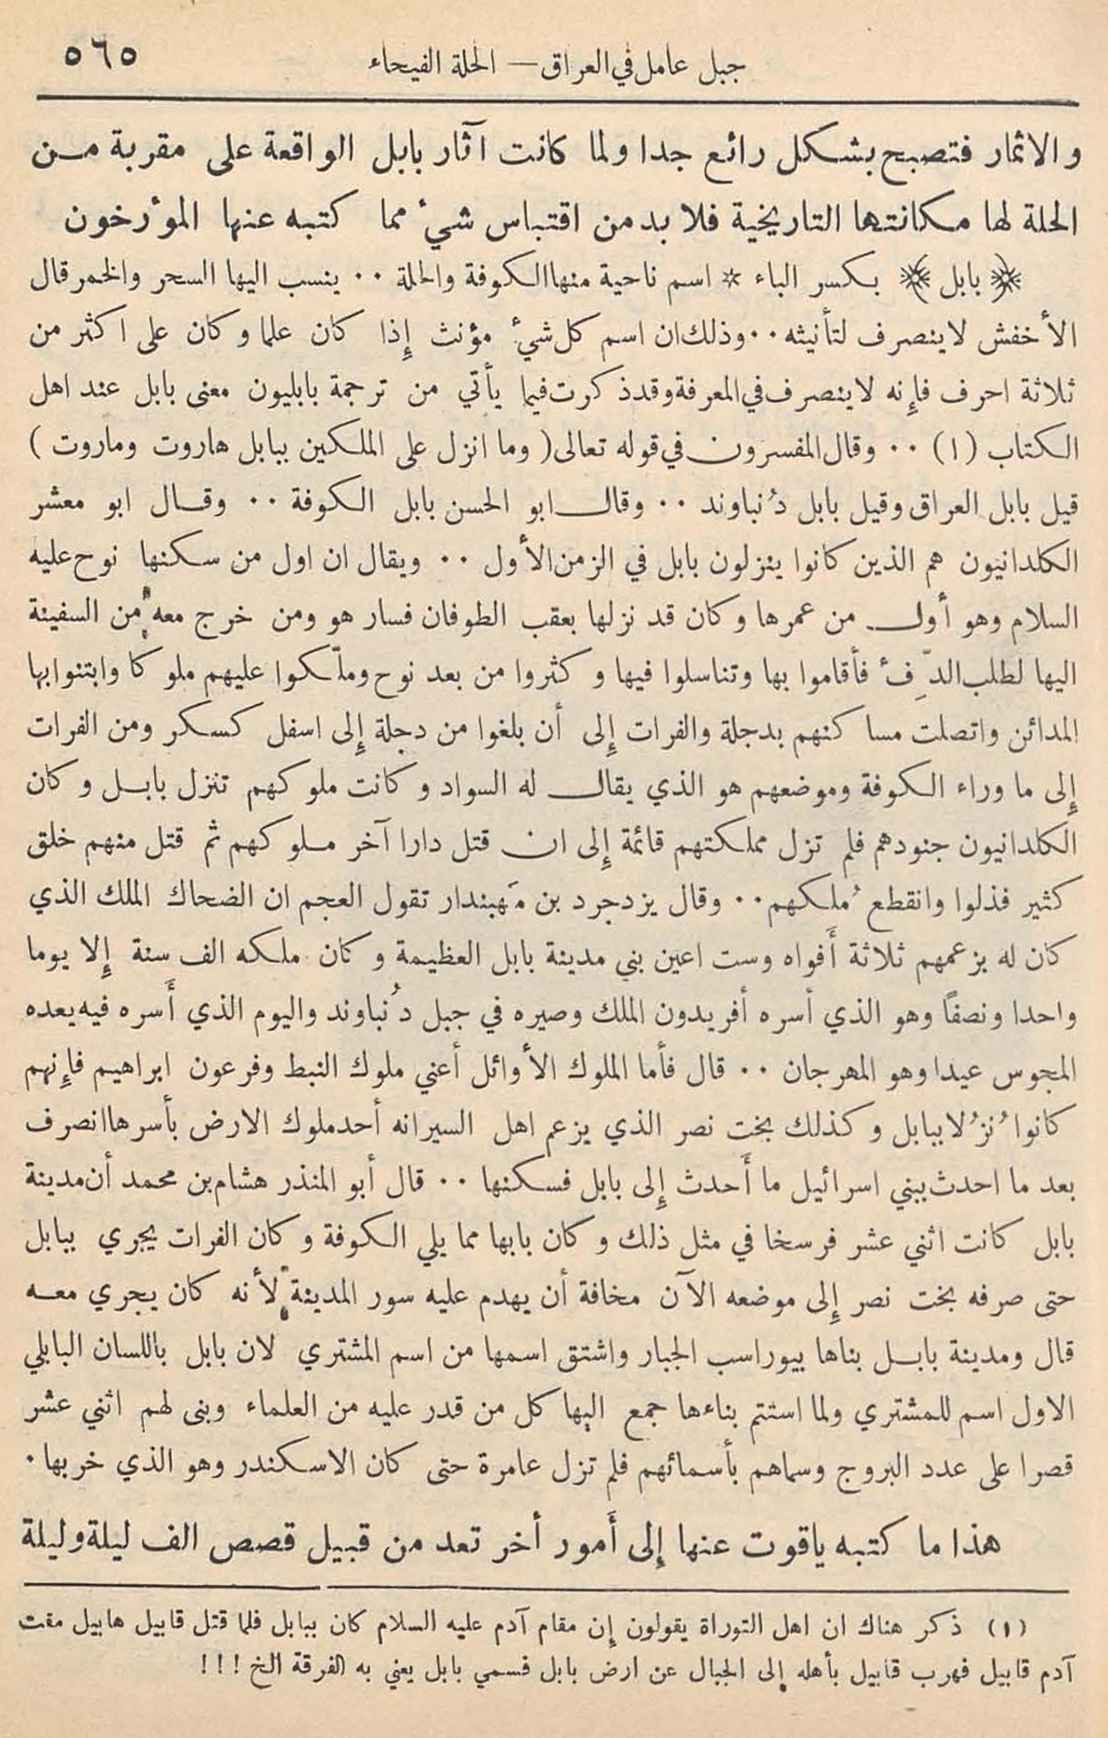 جبل عامل في العراق — الحلة الفيحاء ٥٦٥
والاثمار فتصبح بشكل رائع جدا ولما كانت آثار بابل الواقعة على مقربة من
الحلة لها مكانتها التاريخية فلا بد من اقتباس شيء مما كتبه عنها المؤرخون
﴿ بابل ﴾ بكسر الباء * اسم ناحية منها الكوفة والحلة ٠٠ ينسب اليها السحر والخمر قال
الأخفش لاينصرف لتأنيثه ٠٠ وذلك ان اسم كل شيء مؤنث إذا كان علما وكان على اكثر من
ثلاثة احرف فإنه لاينصرف في المعرفة وقد ذكرت فيما يأتي من ترجمة بابليون معنى بابل عند اهل
الكتاب (١) ٠٠ وقال المفسرون في قوله تعالى ( وما انزل على الملكين ببابل هاروت وماروت )
قيل بابل العراق وقيل بابل دُنباوند ٠٠ وقال ابو الحسن بابل الكوفة ٠٠ وقال ابو معشر
الكلدانيون هم الذين كانوا ينزلون بابل في الزمن الأول ٠٠ ويقال ان اول من سكنها نوح عليه
السلام وهو أول من عمرها وكان قد نزلها بعقب الطوفان فسار هو ومن خرج معه من السفينة
اليها لطلب الدِّفء فأقاموا بها وتناسلوا فيها وكثروا من بعد نوح وملّكوا عليهم ملوكا وابتنوا بها
المدائن واتصلت مساكنهم بدجلة والفرات إلى أن بلغوا من دجلة إلى اسفل كسكر ومن الفرات
إلى ما وراء الكوفة وموضعهم هو الذي يقال له السواد وكانت ملوكهم تنزل بابل وكان
الكلدانيون جنودهم فلم تزل مملكتهم قائمة إلى ان قتل دارا آخر ملوكهم ثم قتل منهم خلق
كثير فذلوا وانقطع مُلكهم ٠٠ وقال يزدجرد بن مَهبندار تقول العجم ان الضحاك الملك الذي
كان له بزعمهم ثلاثة أَفواه وست اعين بني مدينة بابل العظيمة وكان ملكه الف سنة إلا يوما
واحدا ونصفاً وهو الذي أسره أفريدون الملك وصيره في جبل دُنباوند واليوم الذي أَسره فيه يعده
المجوس عيدا وهو المهرجان ٠٠ قال فأما الملوك الأوائل أعني ملوك النبط وفرعون ابراهيم فإنهم
كانوا نُزُلا ببابل وكذلك بخت نصر الذي يزعم اهل السير انه أحد ملوك الارض بأسرها انصرف
بعد ما احدث ببني اسرائيل ما أَحدث إلى بابل فسكنها ٠٠ قال أبو المنذر هشام بن محمد أن مدينة
بابل كانت اثني عشر فرسخا في مثل ذلك وكان بابها مما يلي الكوفة وكان الفرات يجري ببابل
حتى صرفه بخت نصر إلى موضعه الآن مخافة أن يهدم عليه سور المدينة لأنه كان يجري معه
قال ومدينة بابل بناها بيوراسب الجبار واشتق اسمها من اسم المشتري لان بابل باللسان البابلي
الاول اسم للمشتري ولما استتم بناءها جمع اليها كل من قدر عليه من العلماء وبنى لهم اثني عشر
قصرا على عدد البروج وسماهم بأسمائهم فلم تزل عامرة حتى كان الاسكندر وهو الذي خربها ٠
هذا ما كتبه ياقوت عنها إلى أَمور أخر تعد من قبيل قصص الف ليلة وليلة
(١) ذكر هناك ان اهل التوراة يقولون إن مقام آدم عليه السلام كان ببابل فلما قتل قابيل هابيل مقت
آدم قابيل فهرب قابيل بأهله إلى الجبال عن ارض بابل فسمي بابل يعني به الفرقة الخ !!!